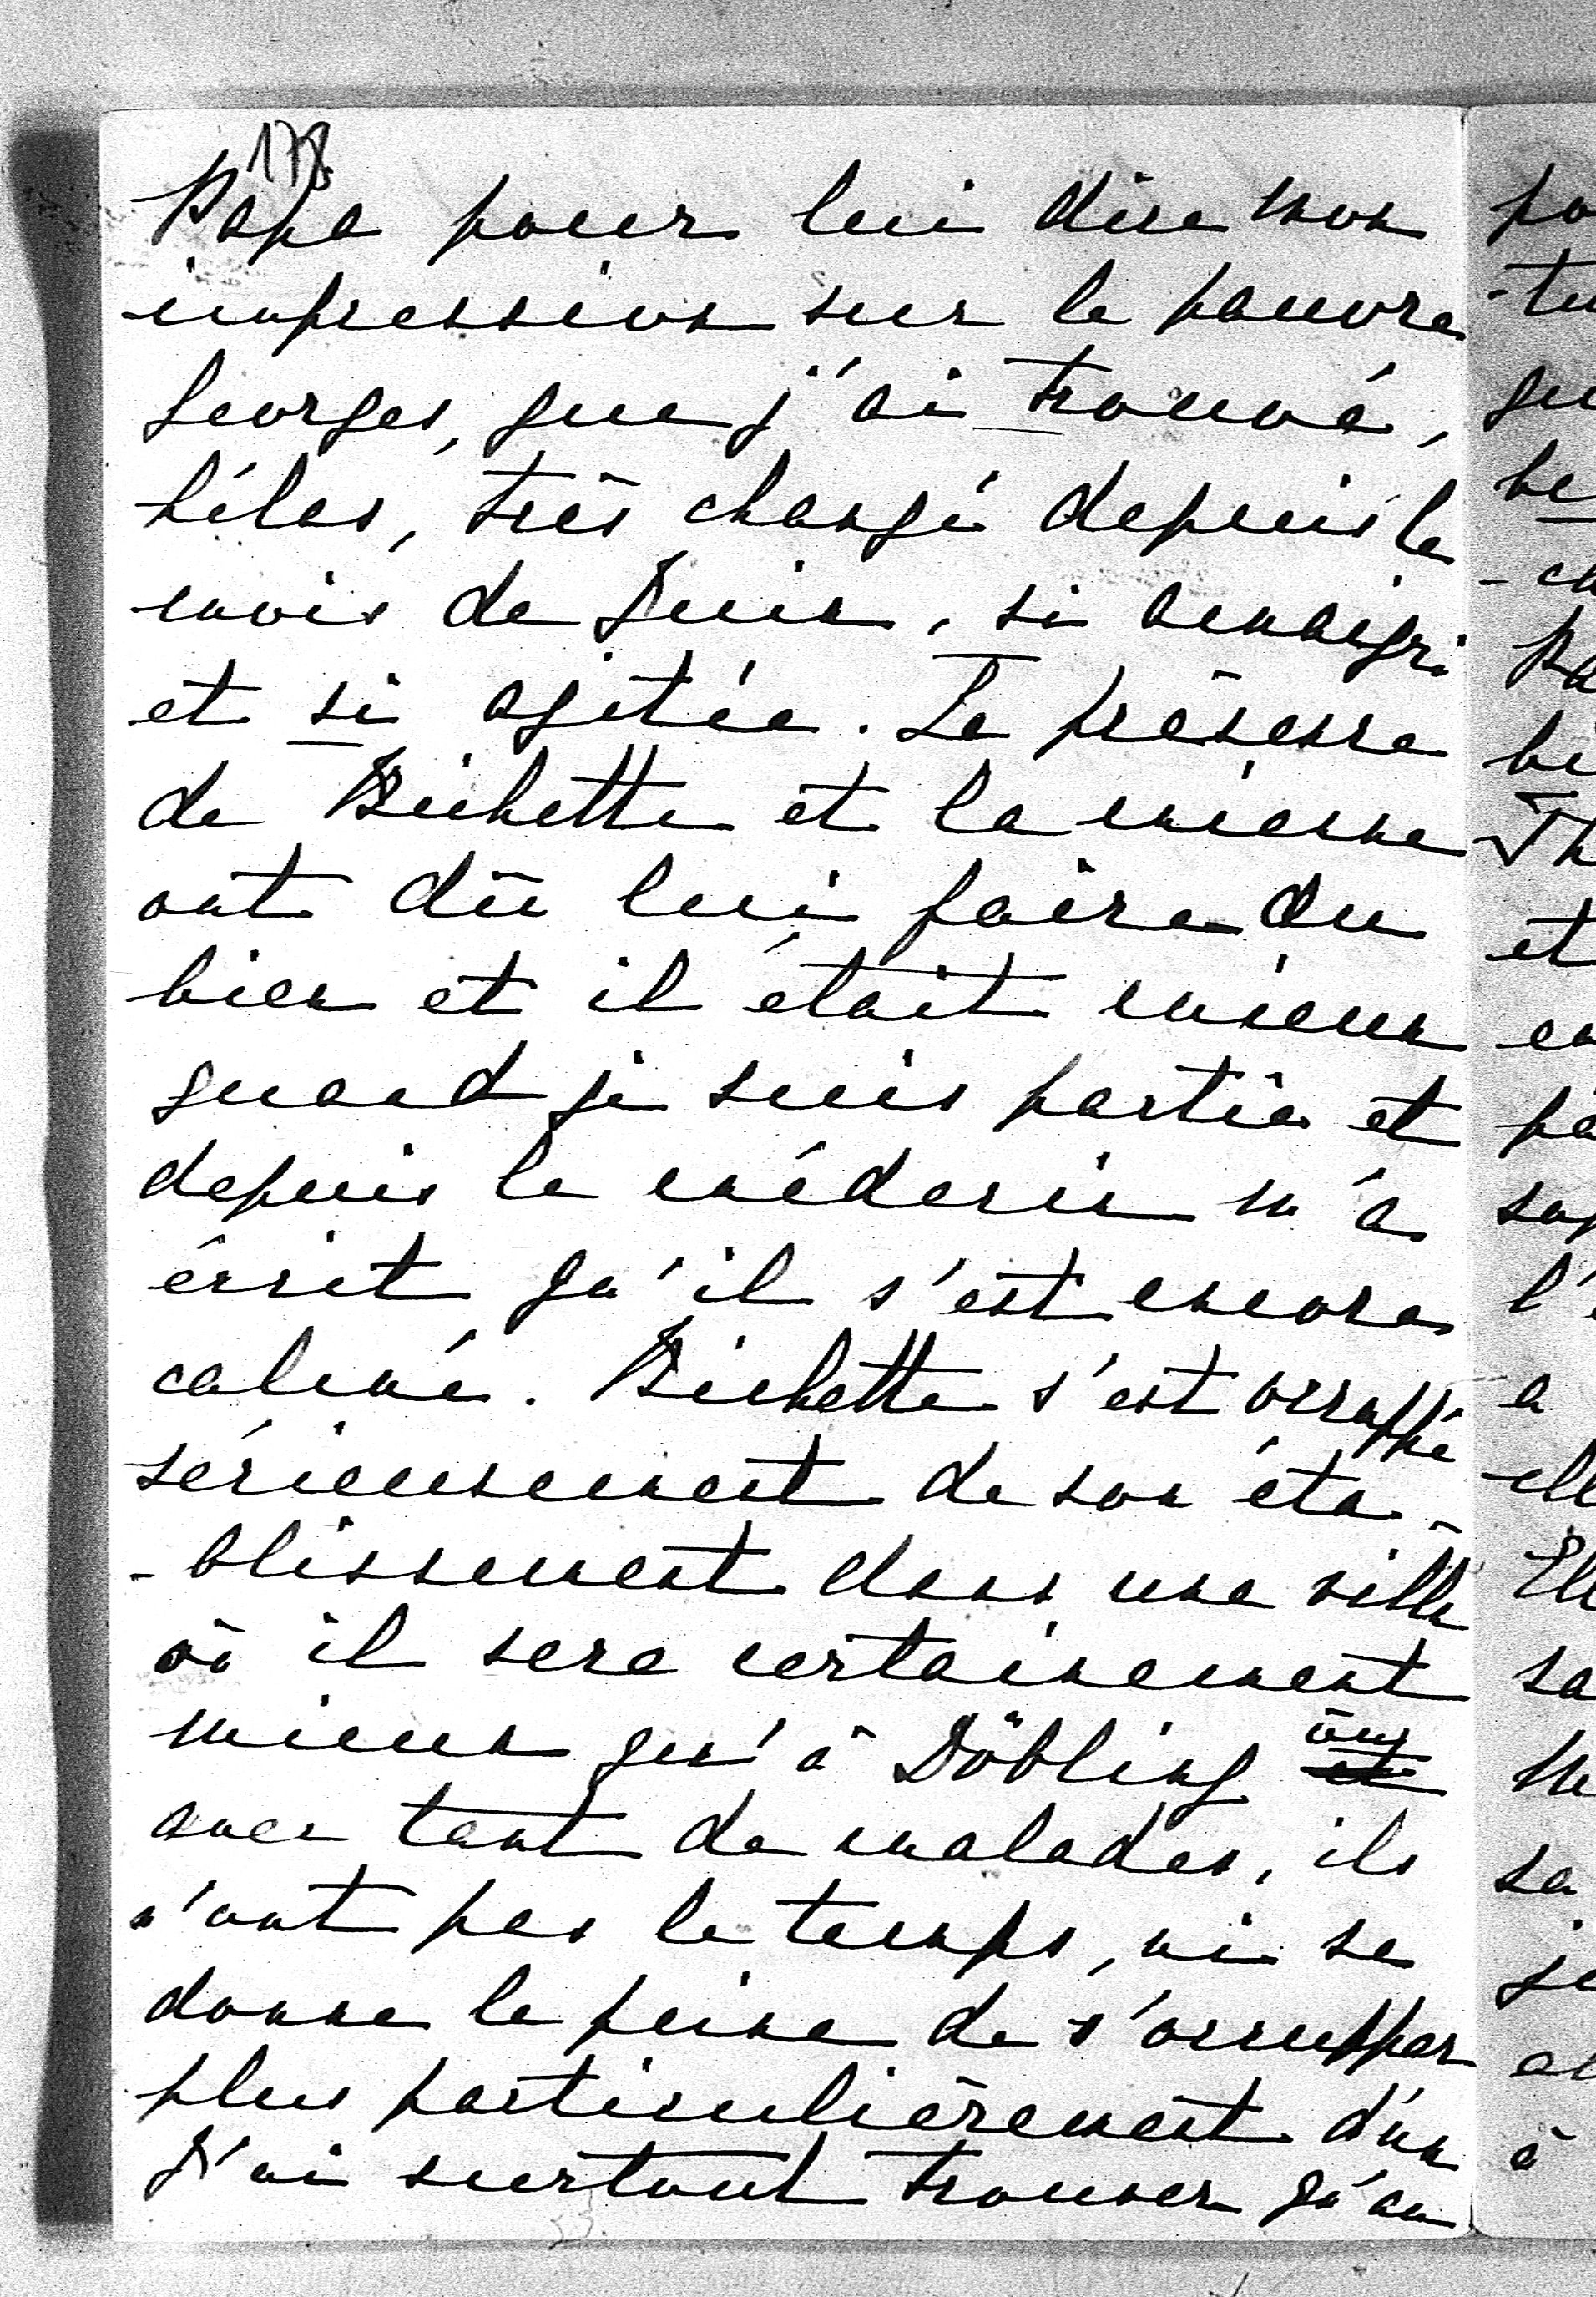 178
Papa pour lui dire mon
impression sur le pauvre
Georges, que j'ai trouvé,
hélas, très changé depuis le
mois de Juin, si amaigri
et si agitée. La présence
de Bichette et la mienne
ont dû lui faire du
bien et il était mieux
quand je suis partie et
depuis le médecin m'a
écrit qu'il s'est encore
calmé. Bichette s'est occuppé
sérieusement de son éta-
-blissement dans une ville
où il sera certainement
mieux qu'à Döbling où
avec tant de malades, ils
n'ont pas le temps, ni se
donne la peine de s'occupper
plus particulièrement d'un
J'ai surtout trouver qu'au
po
-tu
qu
be
-ch
Pa
bi
Th
et
en
pa
sup
l'
a
-ell
Ell
sa
M
sa
je
et
à